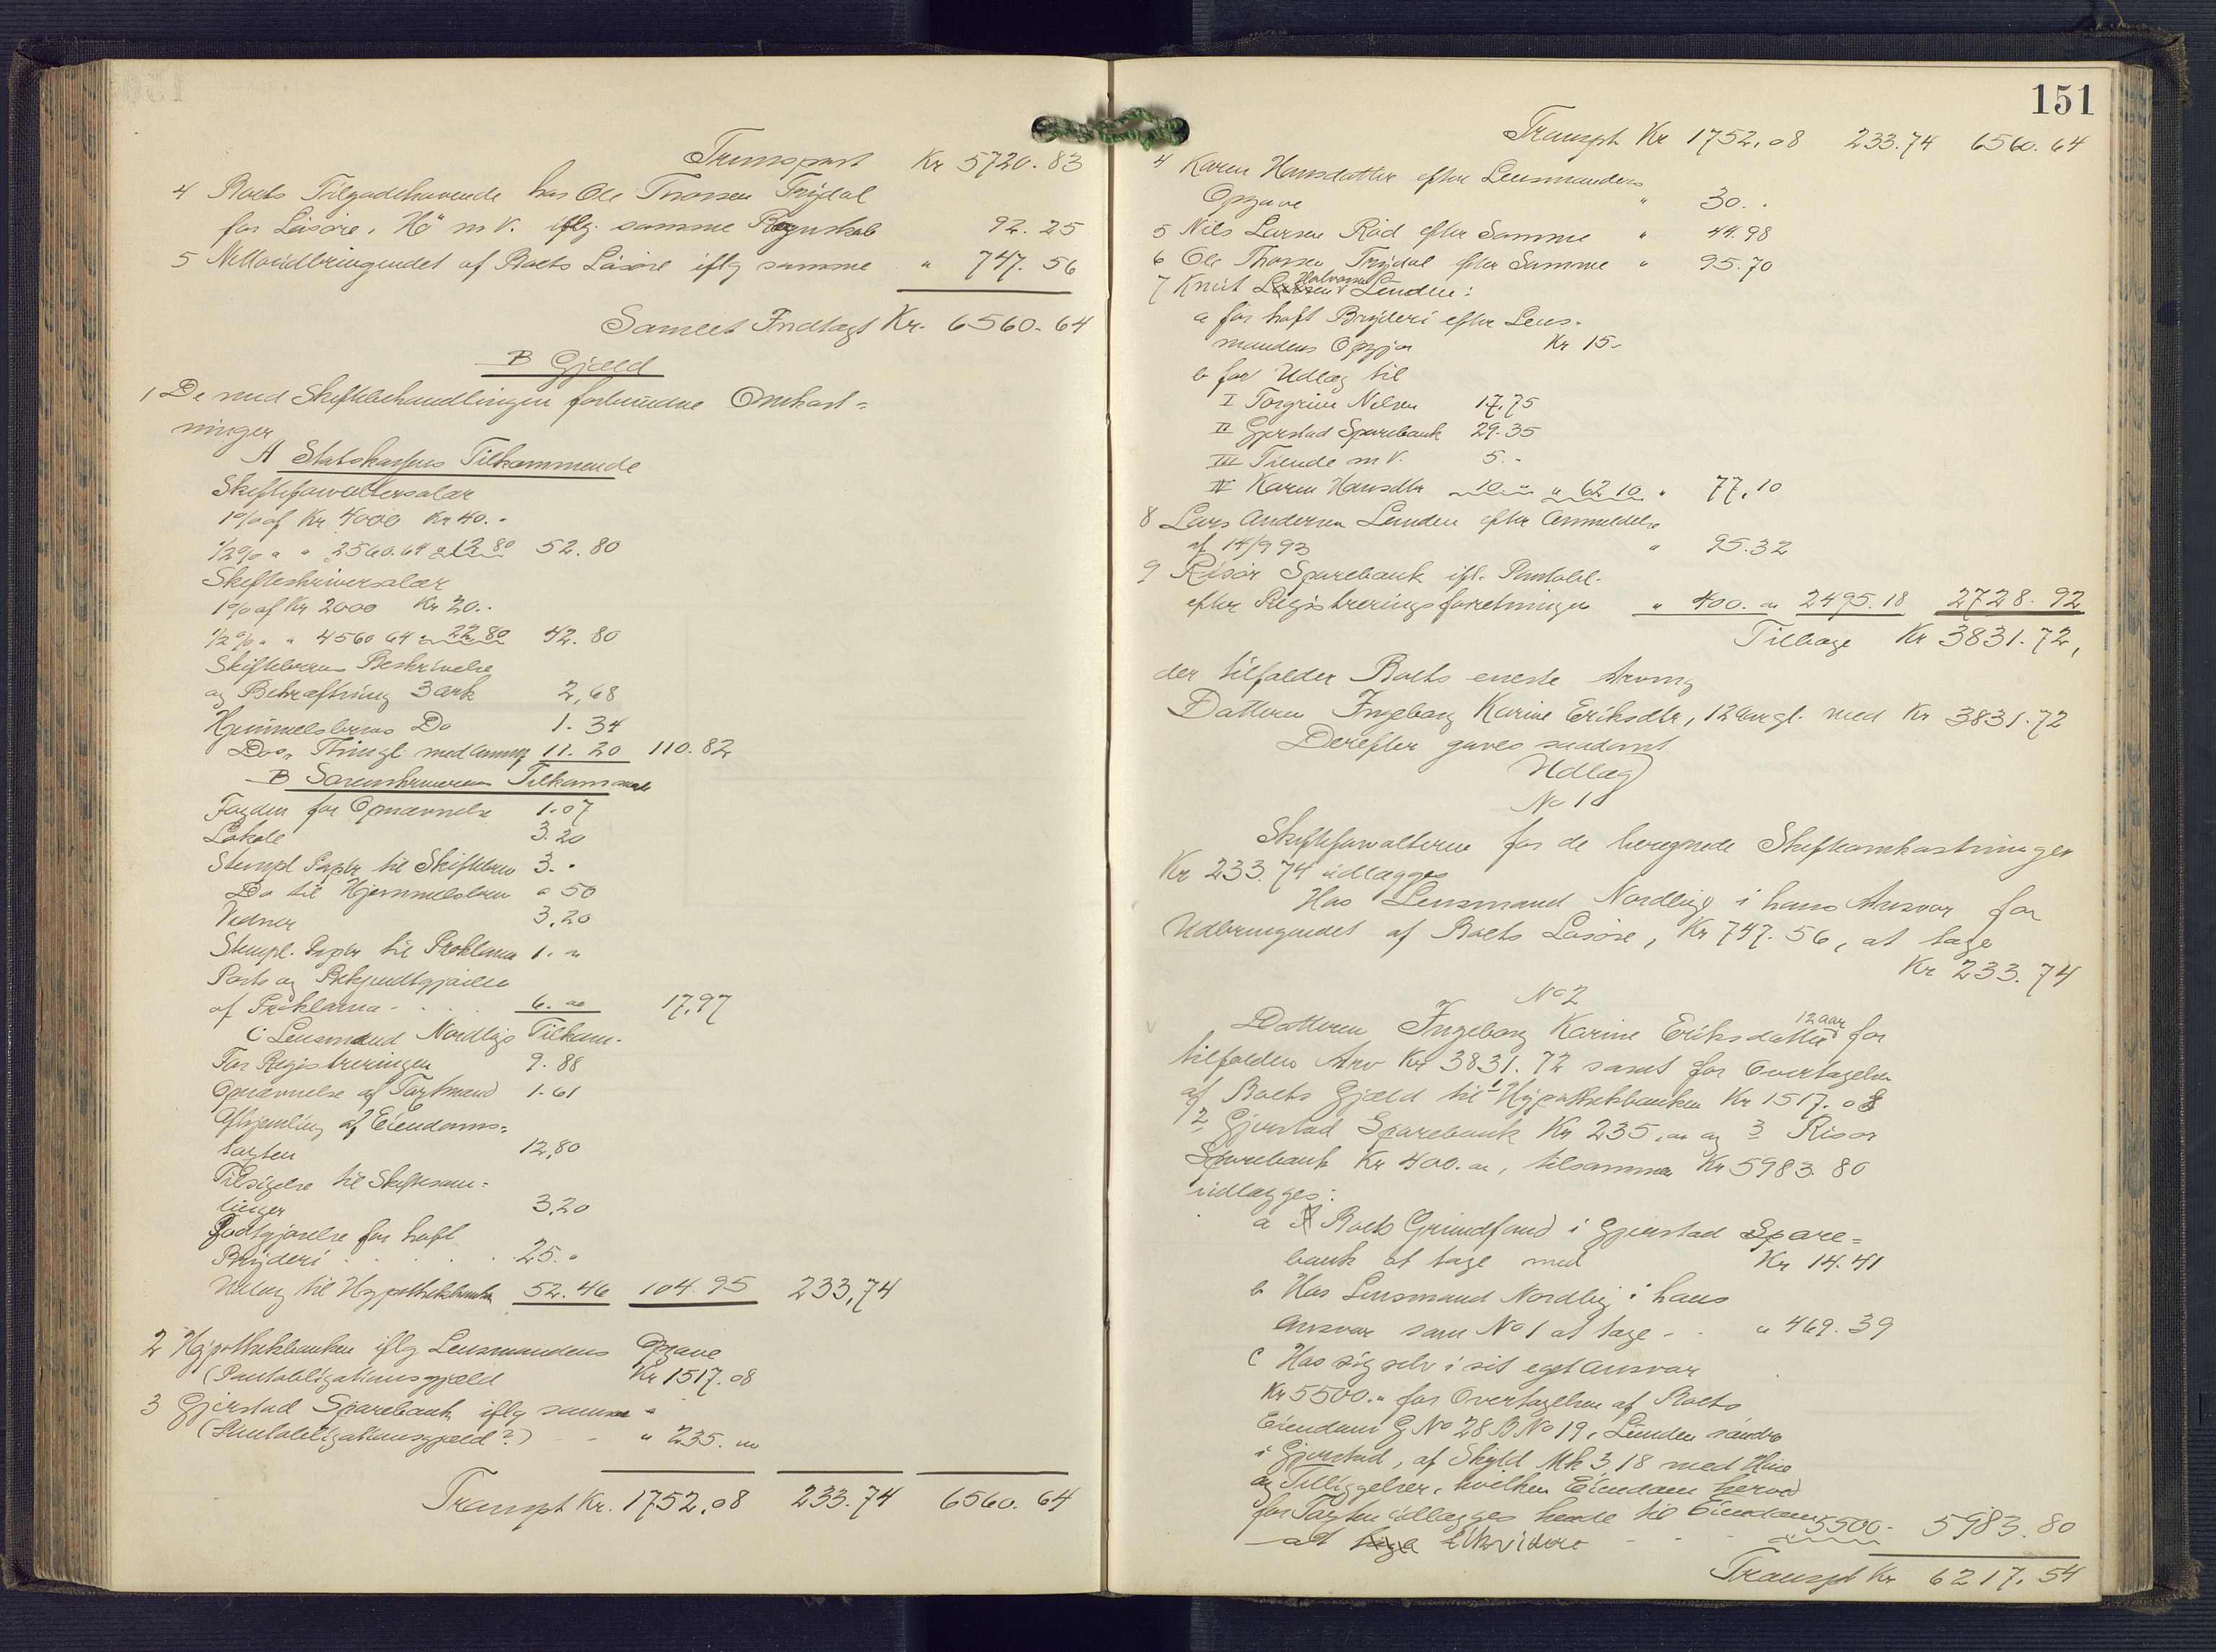 Transport Kr 5720.83
4 Boets Tilgodehavende hos Ole Thorsen Trydal
for Løsøre, Hø m V. iflg. samme Regnskab 92.25
5 Nettoudbringendet af Boets Løsøre iflg samme " 747.56
Samlet Indtægt Kr. 6560.64
B Gjæld
1 De med Skiftebehandlingen forbundne Omkost=
ninger
A Statskassens Tilkommende
Skifteforvaltersalær
1% af Kr 4000 Kr 40.-
1/2% " " 2560.64 " 12.80 52.80
Skifteskriversalær
1% af Kr 2000 Kr 20.-
1/2% " " 4560 64 " 22.80 42.80
Skiftebrevets Beskrivelse
og Bekræftning 3 ark 2,68
Hjemmelsbrevs Do 1.34
Do " Thingl. med Anmng 11.20 110.82
B Sorenskriverens Tilkommende
Fogden for Opnævnelse 1.07
Lokale 3.20
Stempl Papir til Skiftebrev 3.-
Do til Hjemmelsbrev " 50
Vidner 3.20
Stempl. Papir til Proklama 1. "
Porto og Bekjendtgjørelse
af Proklama - . . . 6. " 17,97
C Lensmand Nordbøs Tilkom.
For Registreringen 9.88
Opnævnelse af Taxtmænd 1.61
Afhjemling af Eiendoms=
taxten 12,80
Tilsigelse til Skiftesam=
linger 3.20
Godtgjørelse for havt
Bryderi . . . . 25."
Udlæg til Hypothekbanken 52.46 104.95 233,74
2 Hypothekbanken iflg Lensmandens Opgave
(Pantobligationsgjæld Kr 1517.08
3 Gjerstad Sparebank iflg samme "
(Pantobligationsgjæld?) - - " 235. "
Transpt Kr. 1752,08 233.74 6560.64
151
Transpt Kr 1752,08 233.74 6560.64
4 Karen Hansdatter efter Lensmandens
Opgave " 30.-
5 Nils Larsen Rød efter Samme " 44.98
6 Ole Thorsen Trydal efter Samme " 95.70
Halvorsen
7 Knut Larsen Lunden:
a for havt Bryderi efter Lens-
mandens Opgjør Kr 15-
b for Udlæg til
I Torgrim Nilsen 17,75
II Gjerstad Sparebank 29.35
III Tiende m V. 5.-
IV Karen Hansdtr 10 " " 62 10 " 77,10
8 Lars Andersen Lunden efter Anmeldelse
af 14/9 93 " 95.32
9 Risør Sparebank ifl. Pantobl.
efter Registreringsforretningen " 400. " 2495.18 2728.92
Tilbage Kr 3831.72,
der tilfalder Boets eneste Arving
Datteren Ingeborg Karine Eriksdtr, 12 Aar gl. med Kr 3831.72
Derefter gaves saadant
Udlæg
No 1
Skifteforvalteren for de beregnede Skifteomkostninger
Kr 233.74 udlægges
Hos Lensmand Nordbø i hans Ansvar for
Udbringendet af Boets Løsøre, Kr 747.56, at tage
Kr 233.74
No 2
12 aar
Datteren Ingeborg Karine Eriksdatter for
tilfalden Arv Kr 3831.72 samt for Overtagelsen
af Boets Gjæld til 1 Hypothekbanken Kr 1517.08
2 Gjerstad Sparebank Kr 235, " og 3 Risør
Sparebank Kr 400. ", tilsammen Kr 5983.80
udlægges:
a Boets Grundfond i Gjerstad Spare=
bank at tage med Kr 14.41
b Hos Lensmand Nordbø i hans
Ansvar som No 1 at tage - - " 469.39
c Hos sig selv i sit eget Ansvar
Kr 5500." for Overtagelsen af Boets
Eiendom G No 28 B No 19, Lunden søndre
i Gjerstad, af Skyld Mk 3,18 med Huse
og Tilliggelser, hvilken Eiendom herved
for Taxten udlægges hende til Eiendom
at tage likvidere - - - " 5500.- 5983.80
Transpt Kr 6217.54